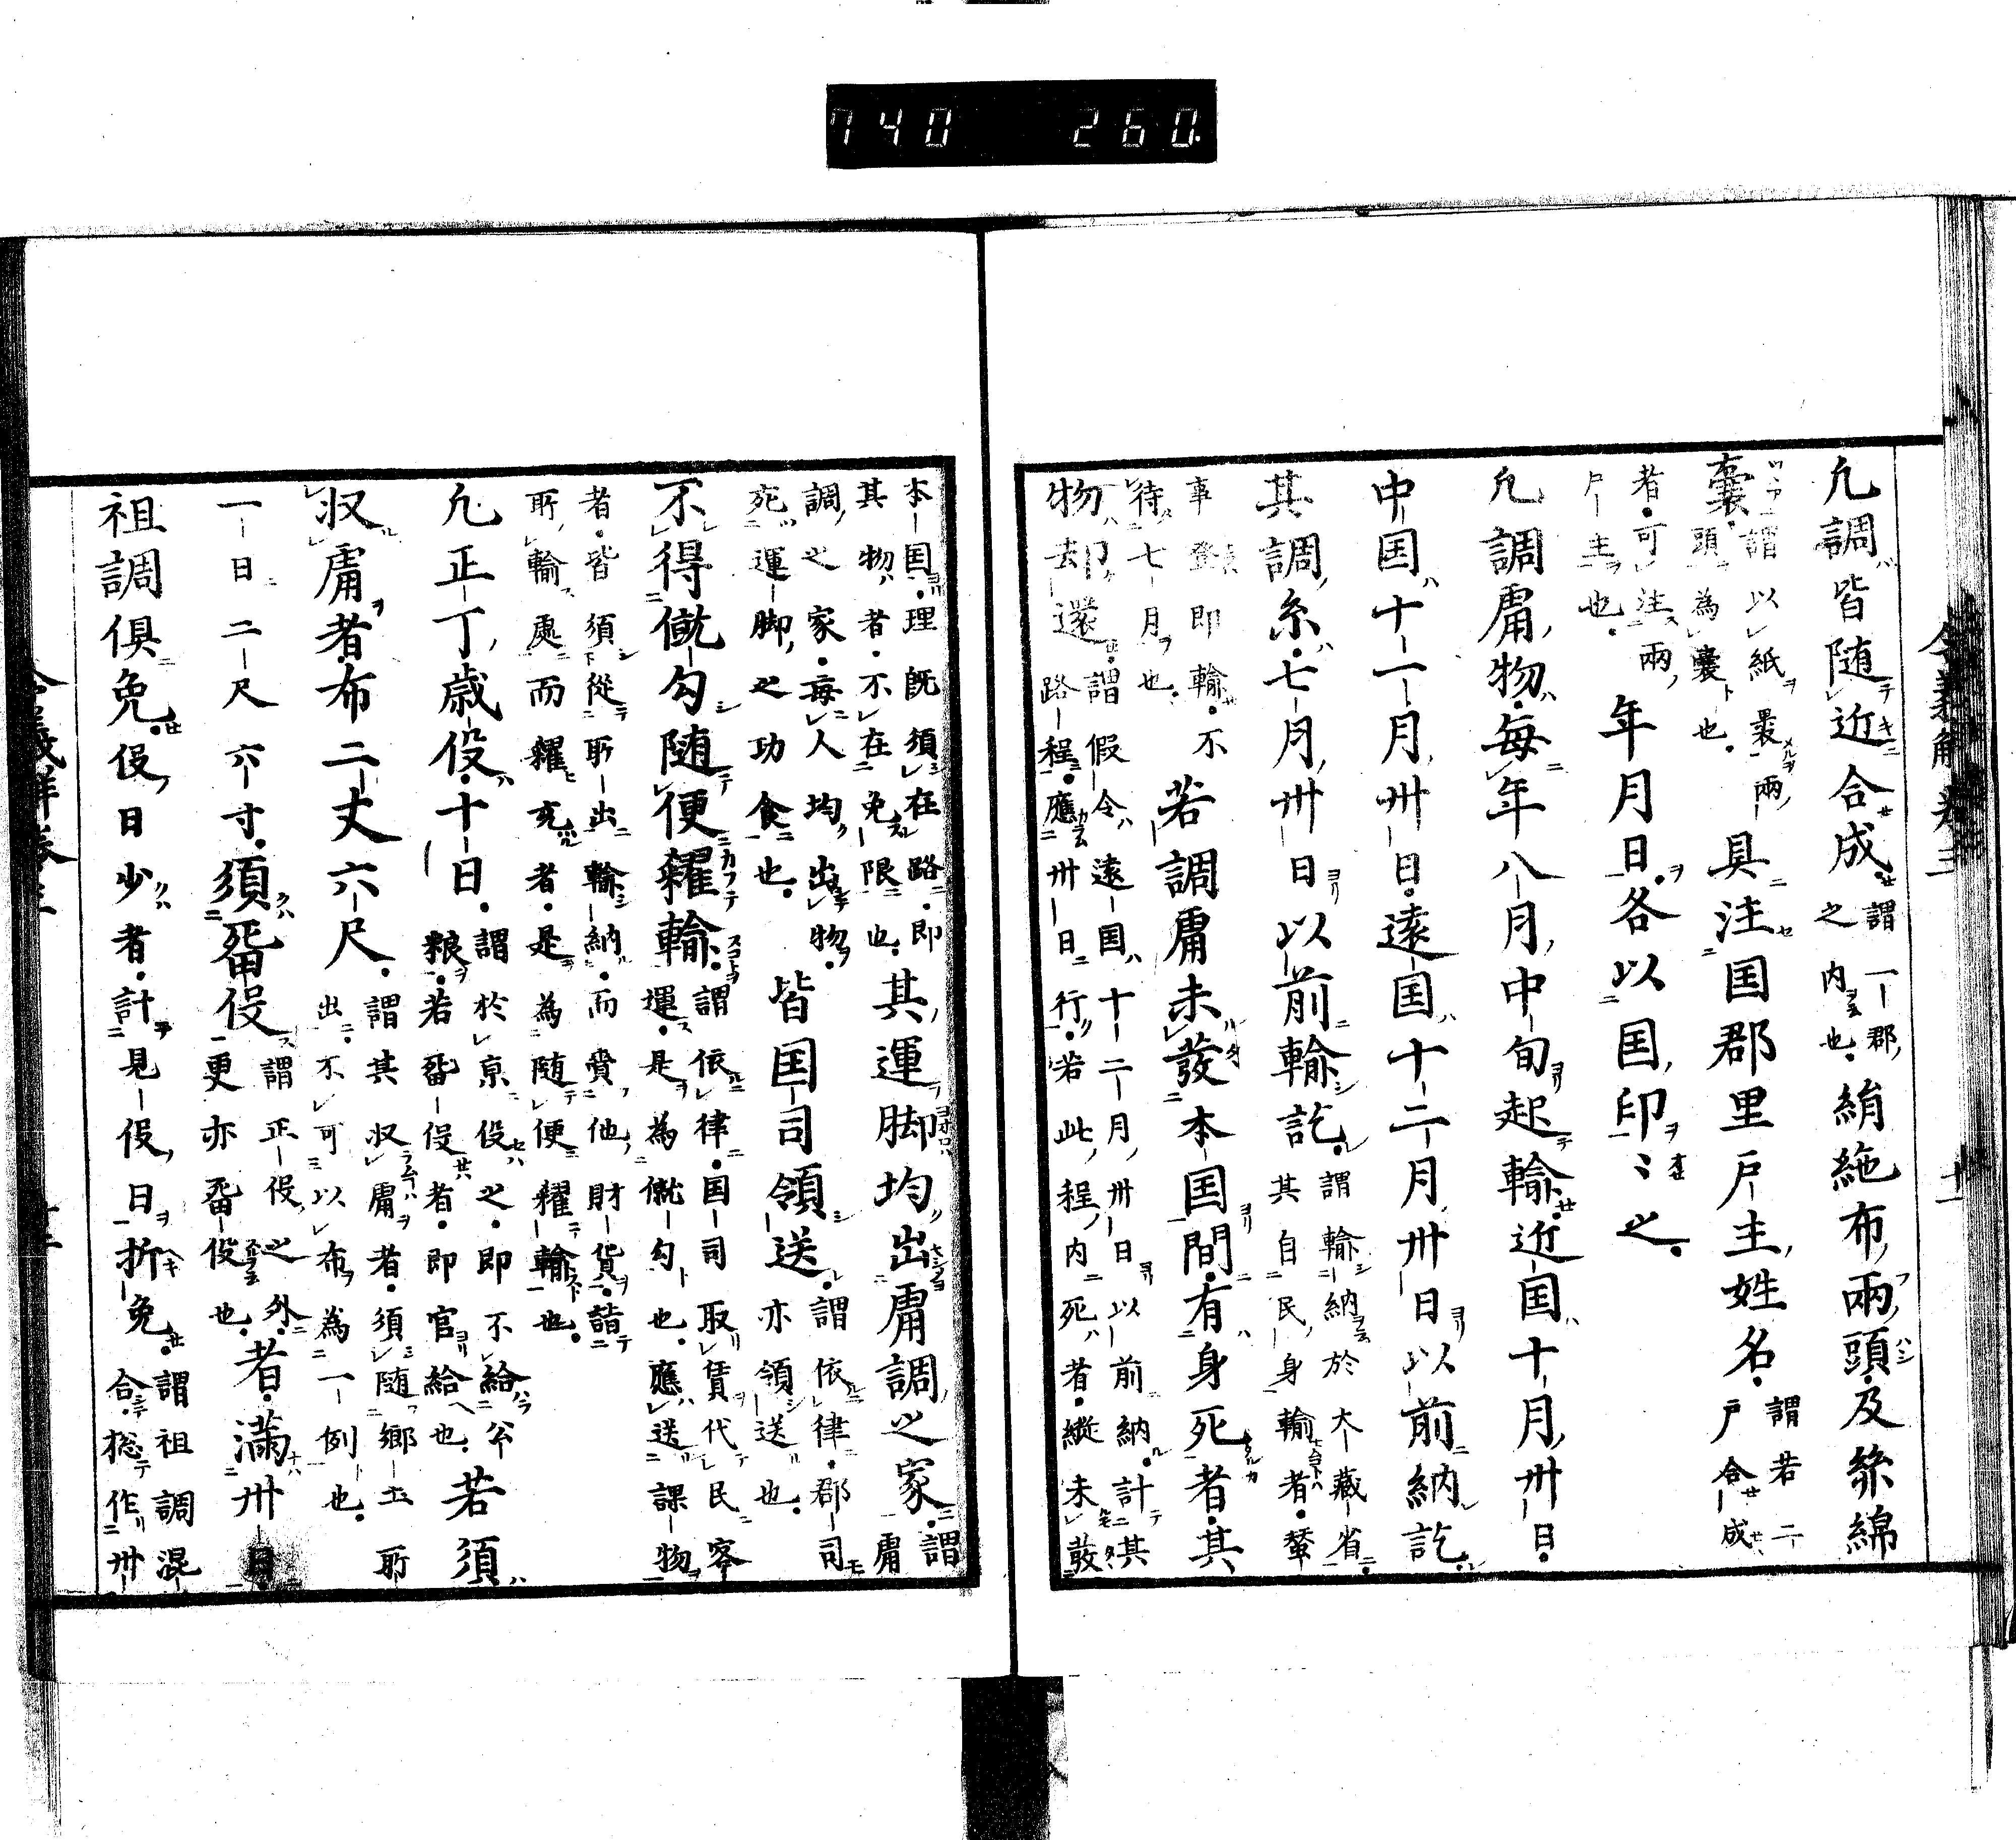 740 260
凡調皆随近合成謂一郡之内也絹絁布兩頭及絲綿
嚢謂以紙裹兩頭為嚢也具注国郡里戸主姓名謂若二戸合成
者可注兩戸主也年月日各以国印〻之
凡調庸物每年八月中旬起輸近国十月卅日
中国十一月卅日遠国十二月卅日以前納訖
其調糸七月卅日以前輸訖謂輸納於大藏省其自民身輸者蚕
事登即輸不待七月也若調庸未發本国間有身死者其
物却還謂假令遠国十二月卅日以前納計其路程應卅日行若此程内死者縱未發
本国理既須在路即其物者不在免限也其運脚均出庸調之家謂庸
調之家每人均出物充運脚之功食也皆国司領送謂依律郡司亦領送也
不得僦勾随便糴輸謂依律国司取賃代民容運是為僦勾也應送課物
者皆須從所出輸納而賷他財貨詣所輸處而糴充者是為随便糴輸也
凡正丁歳役十日謂於京役之即不給公粮若畱役者即官給也若須
収庸者布二丈六尺謂其収庸者須随郷土所出不可以布為一例也
一日二尺六寸須畱役謂正役之外更亦畱役也者滿卅日
祖調俱免役日少者計見役日折免謂祖調混合惣作卅